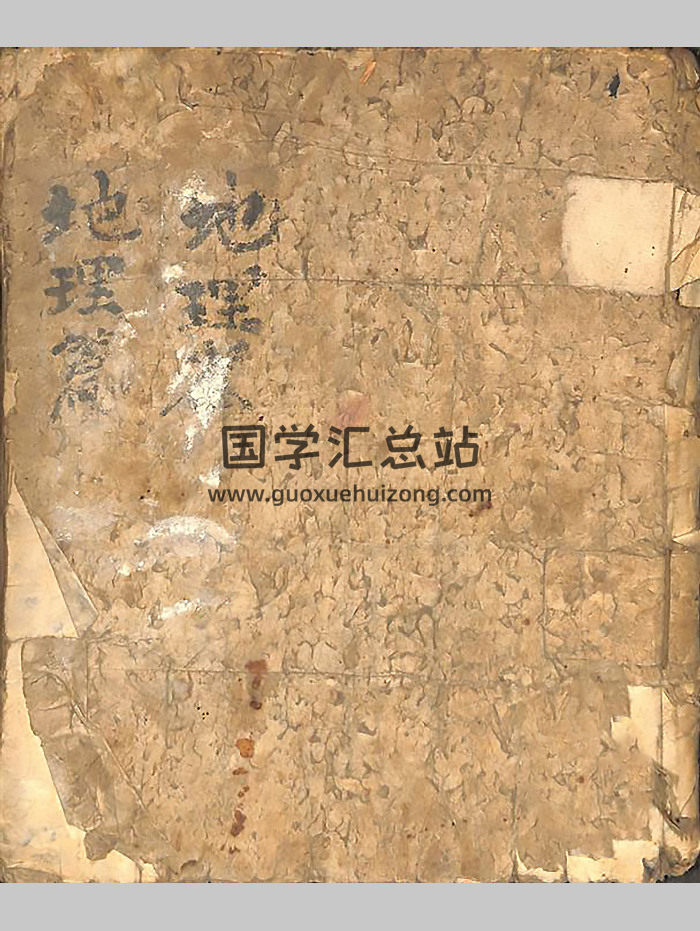 地理
地理篇
国学汇总站
www.guoxuehuizong.com